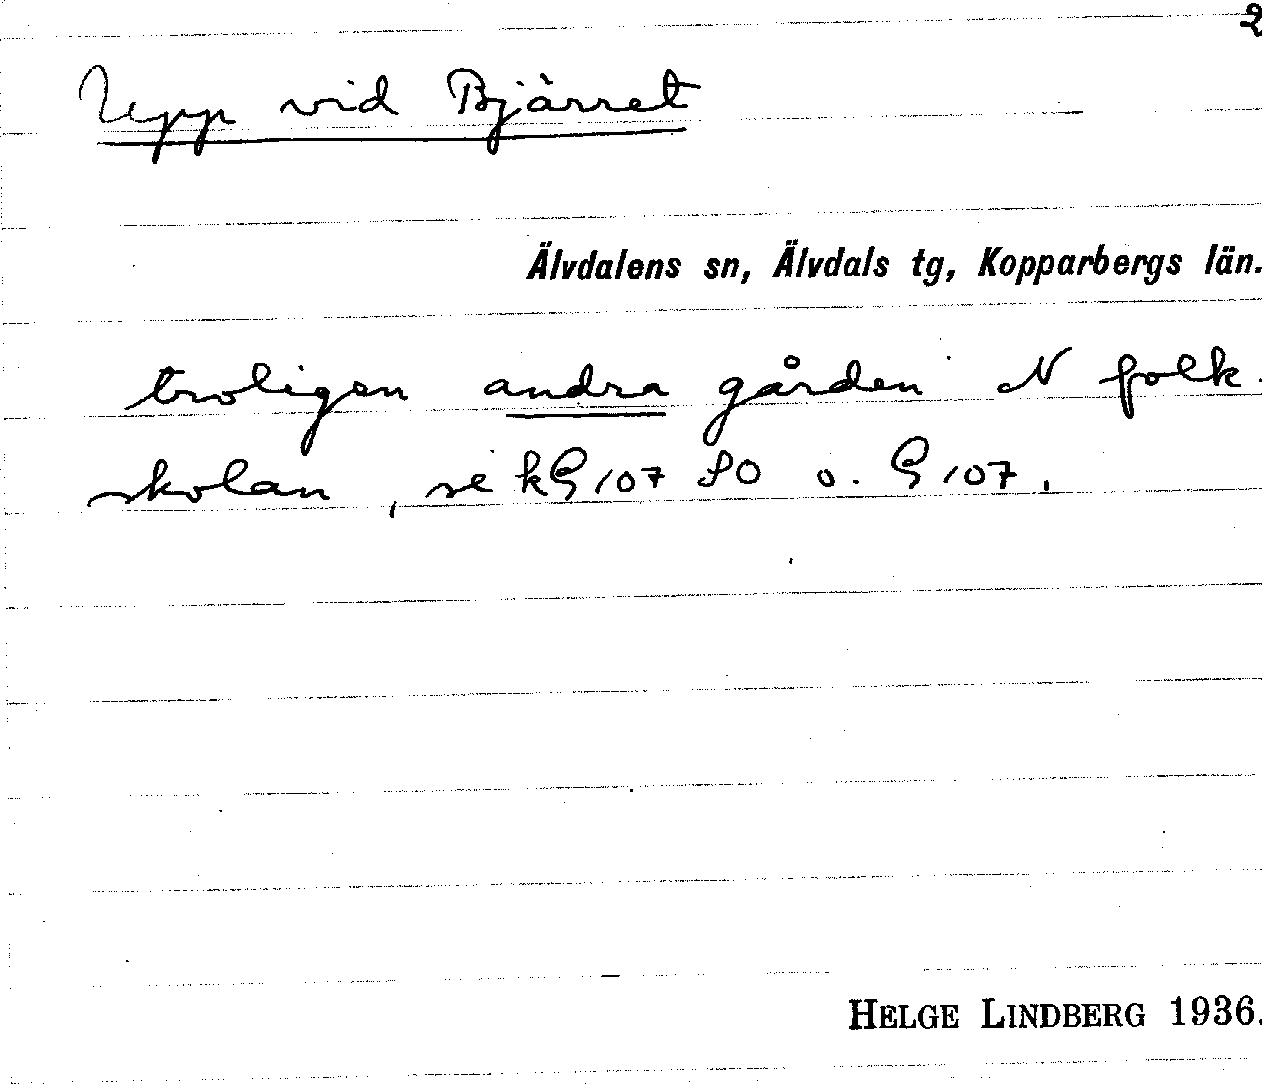 2
Upp vid Bjärret
Älvdalens sn, Älvdals tg, Kopparbergs län.
troligen andra gården N folk
skolan, se kG 107 SO o. G 107.
HELGE LINDBERG 1936.